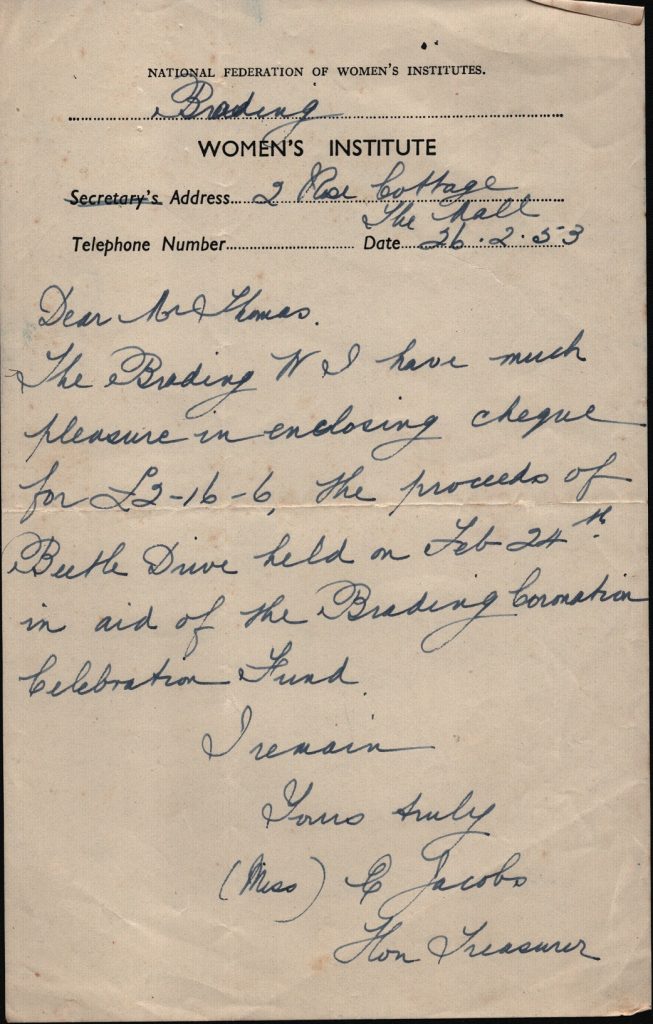 NATIONAL FEDERATION OF WOMEN'S INSTITUTES.
Brading
WOMEN'S INSTITUTE
Secretary's Address 2 Rose Cottage
The Mall
Telephone Number Date 26.2.53
Dear Mr Thomas.
The Brading W I have much
pleasure in enclosing cheque
for £2-16-6, the proceeds of
Beetle Drive held on Feb 24th.
in aid of the Brading Coronation
Celebration Fund.
I remain
Yours truly
(Miss) E Jacobs
Hon Treasurer